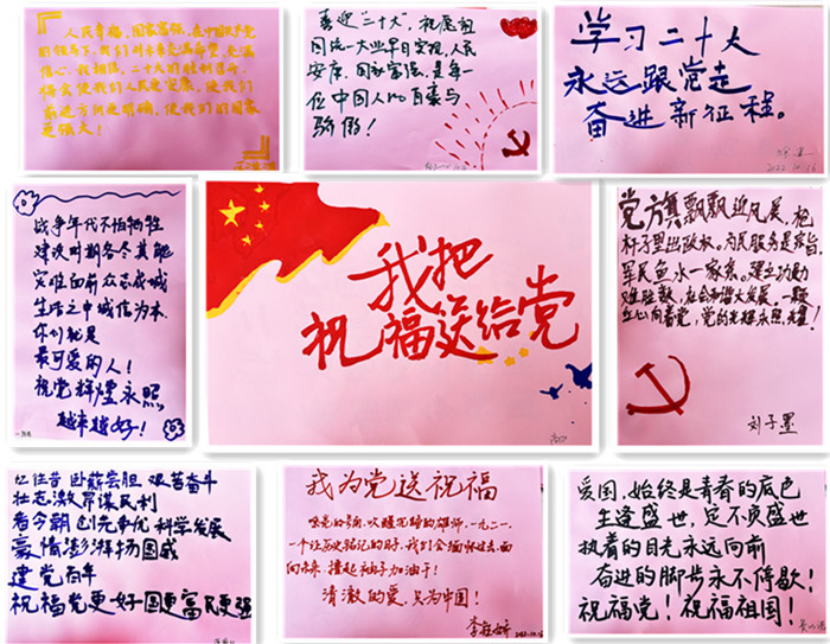 人民幸福，国家富强，在中国共产党
的领导下，我们对未来充满希望，充满
信心。我相信，二十大的胜利召开，
将会使我们人民更安康，使我们
前进方向更明确，使我们的国家
更强大！
喜迎“二十大”，祝愿祖
国统一大业早日实现，人民
安康，国家富强，是每一
位中国人的自豪与
骄傲！
学习二十大
永远跟党走
奋进新征程。
2022.10.16
战争年代不怕牺牲
建设时期各尽其能
灾难面前众志成城
生活之中诚信为本
你们就是
最可爱的人！
祝党辉煌永照，
越来越好！
我把
祝福送给党
党旗飘飘迎风展，枪
杆子里出政权。为民服务是宗旨，
军民鱼水一家亲。建立功勋
难胜数，社会和谐大发展。一颗
红心向着党，党的光辉永照耀！
刘子墨
忆往昔 卧薪尝胆 艰苦奋斗
壮志激昂谋民利
看今朝 创先争优 科学发展
豪情澎湃扬国威
建党百年
祝福党更好国更富民更强
我为党送祝福
嘹亮的号角，吹醒沉睡的雄狮，一九二一，
一个让历史铭记的时刻，我们会缅怀过去，面
向未来，撸起袖子加油干！
清澈的爱，只为中国！
爱国，始终是青春的底色
生逢盛世，定不负盛世
执着的目光永远向前
奋进的脚步永不停歇！
祝福党！祝福祖国！